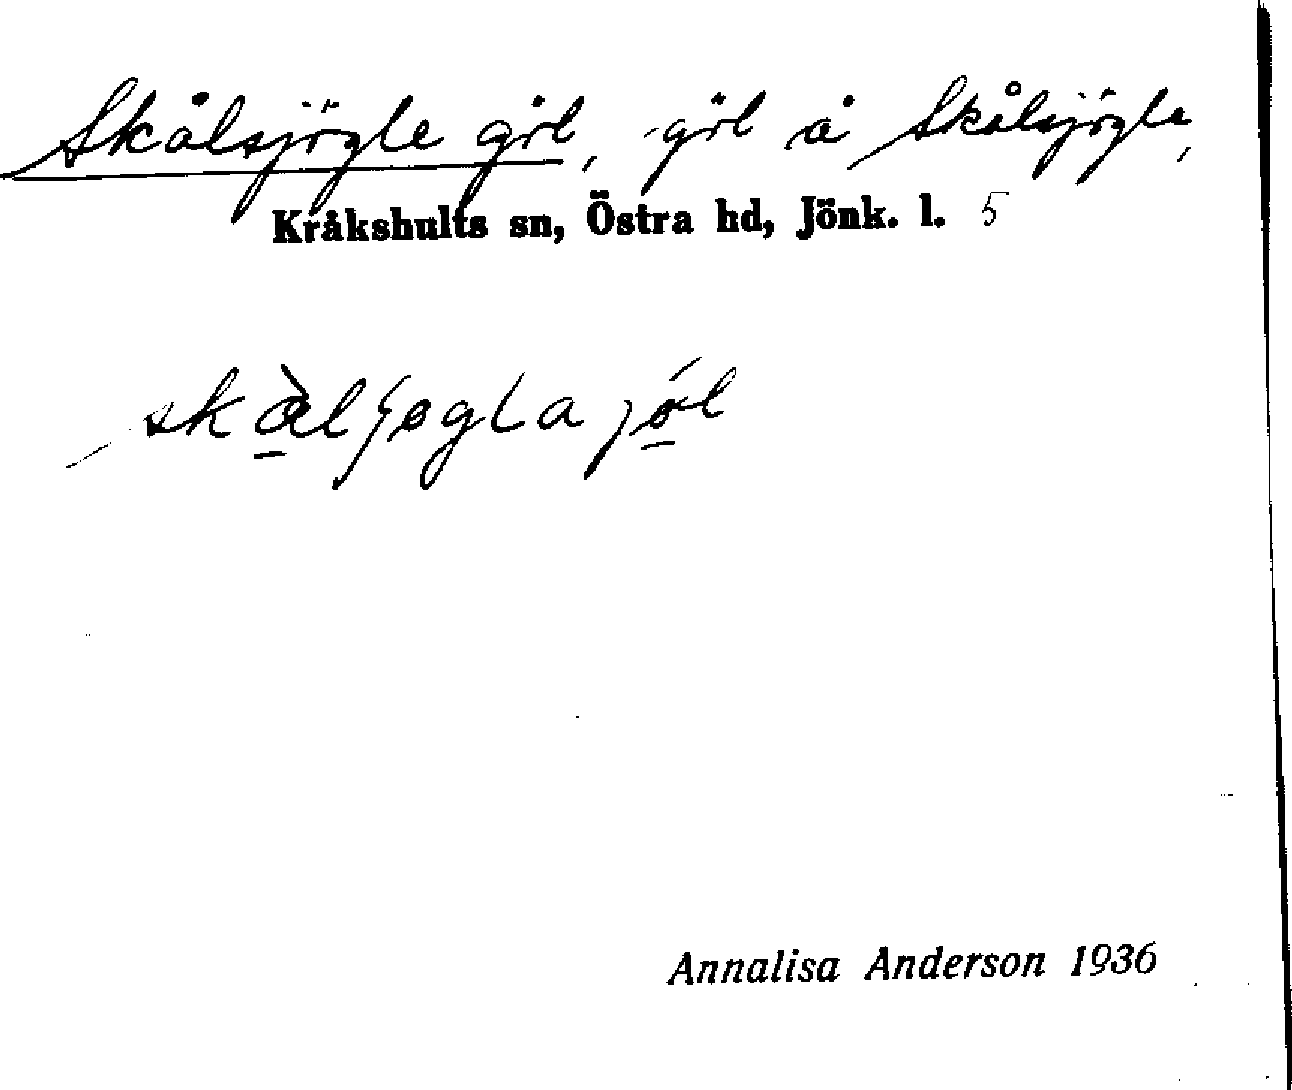 Skålsjögle göl, göl å Skålsjögle,
Kråkshults sn, Östra hd, Jönk. l. 5
Annalisa Anderson 1936